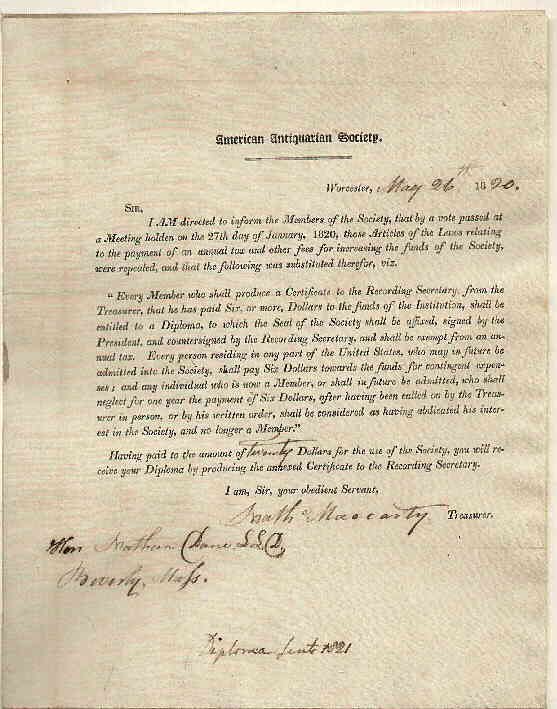 American Antiquarian Society.
Worcester, May 26th 1820.
SIR,
I AM directed to inform the Members of the Society, that by a vote passed at
a Meeting holden on the 27th day of January, 1820, those Articles of the Laws relating
to the payment of an annual tax and other fees for increasing the funds of the Society,
were repealed, and that the following was substituted therefor, viz.
" Every Member who shall produce a Certificate to the Recording Secretary, from the
Treasurer, that he has paid Six, or more, Dollars to the funds of the Institution, shall be
entitled to a Diploma, to which the Seal of the Society shall be affixed, signed by the
President, and countersigned by the Recording Secretary, and shall be exempt from an an-
nual tax. Every person residing in any part of the United States, who may in future be
admitted into the Society, shall pay Six Dollars towards the funds for contingent expen-
ses ; and any individual who is now a Member, or shall in future be admitted, who shall
neglect for one year the payment of Six Dollars, after having been called on by the Treas-
urer in person, or by his written order, shall be considered as having abdicated his inter-
est in the Society, and no longer a Member."
Having paid to the amount of twenty Dollars for the use of the Society, you will re-
ceive your Diploma by producing the annexed Certificate to the Recording Secretary.
I am, Sir, your obedient Servant,
Nathl Maccarty Treasurer.
Hon Nathan Dane LLD,
Beverly, Mass.
Diploma sent 1821